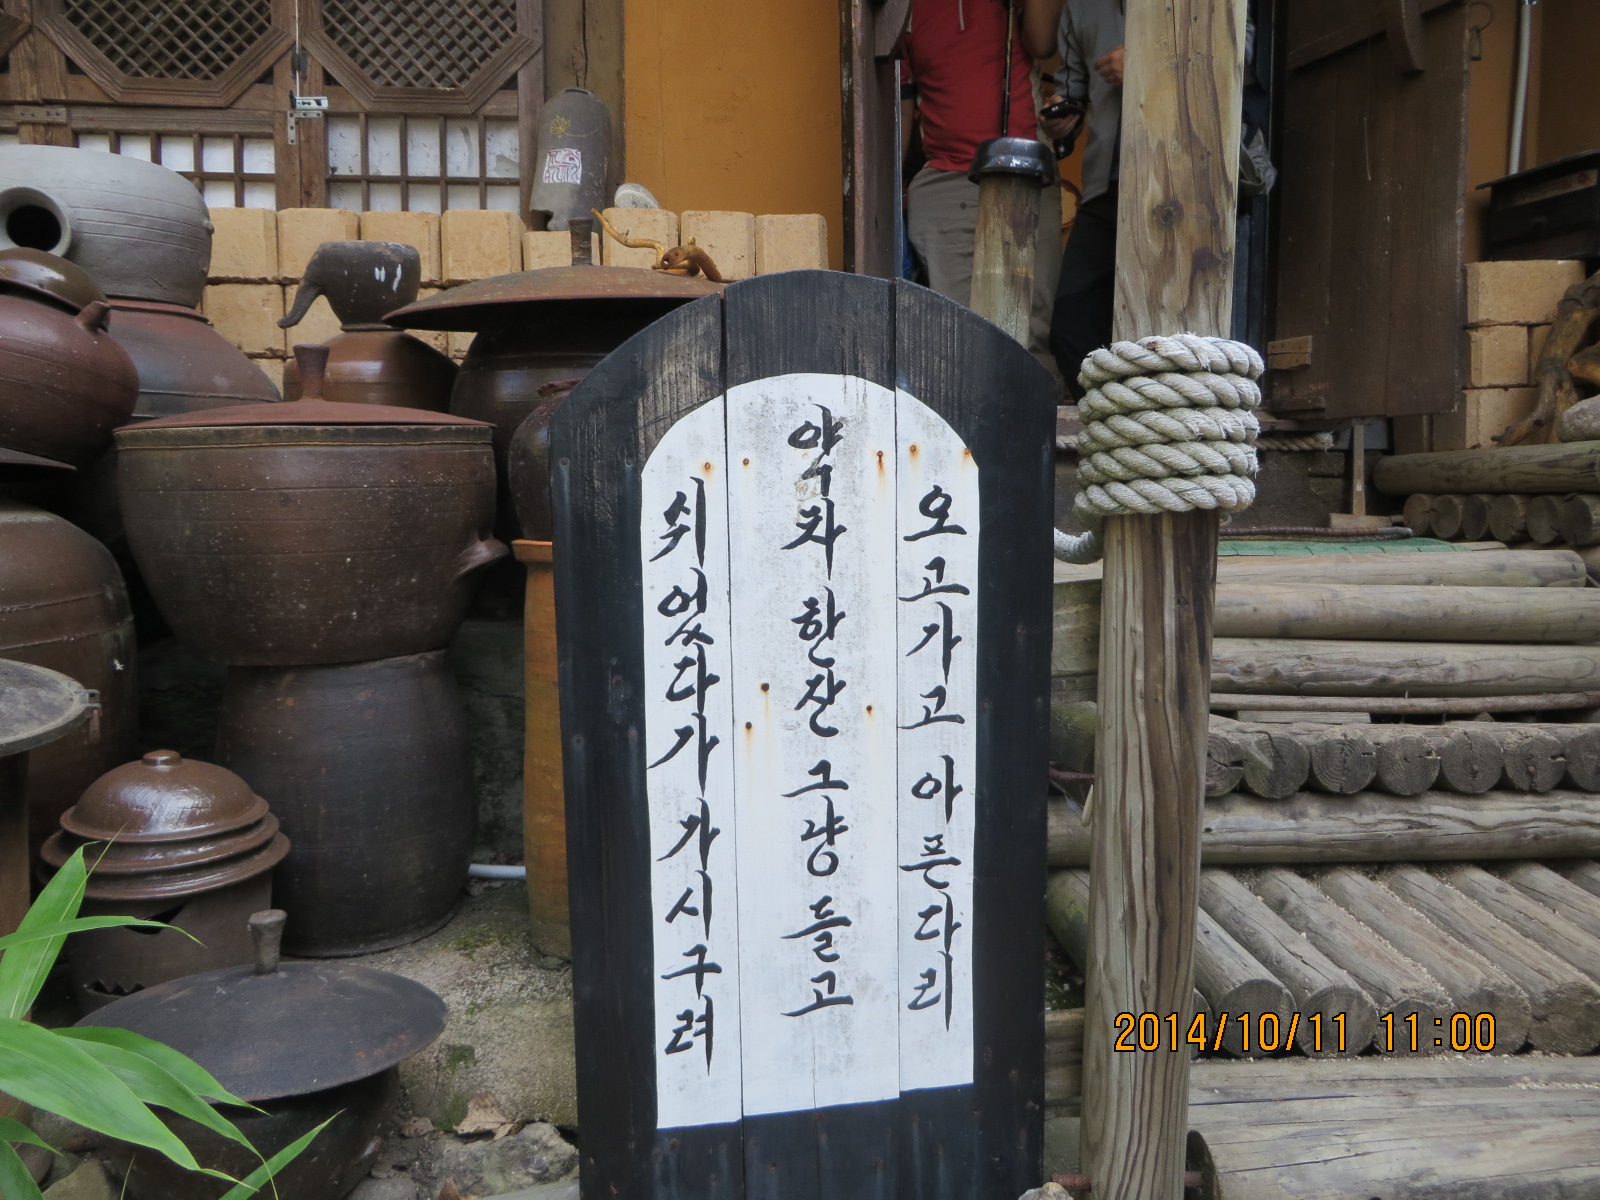 오고가고 아픈다리
약차 한잔 그냥 들고
쉬었다가 가시구려
2014/10/11 11:00